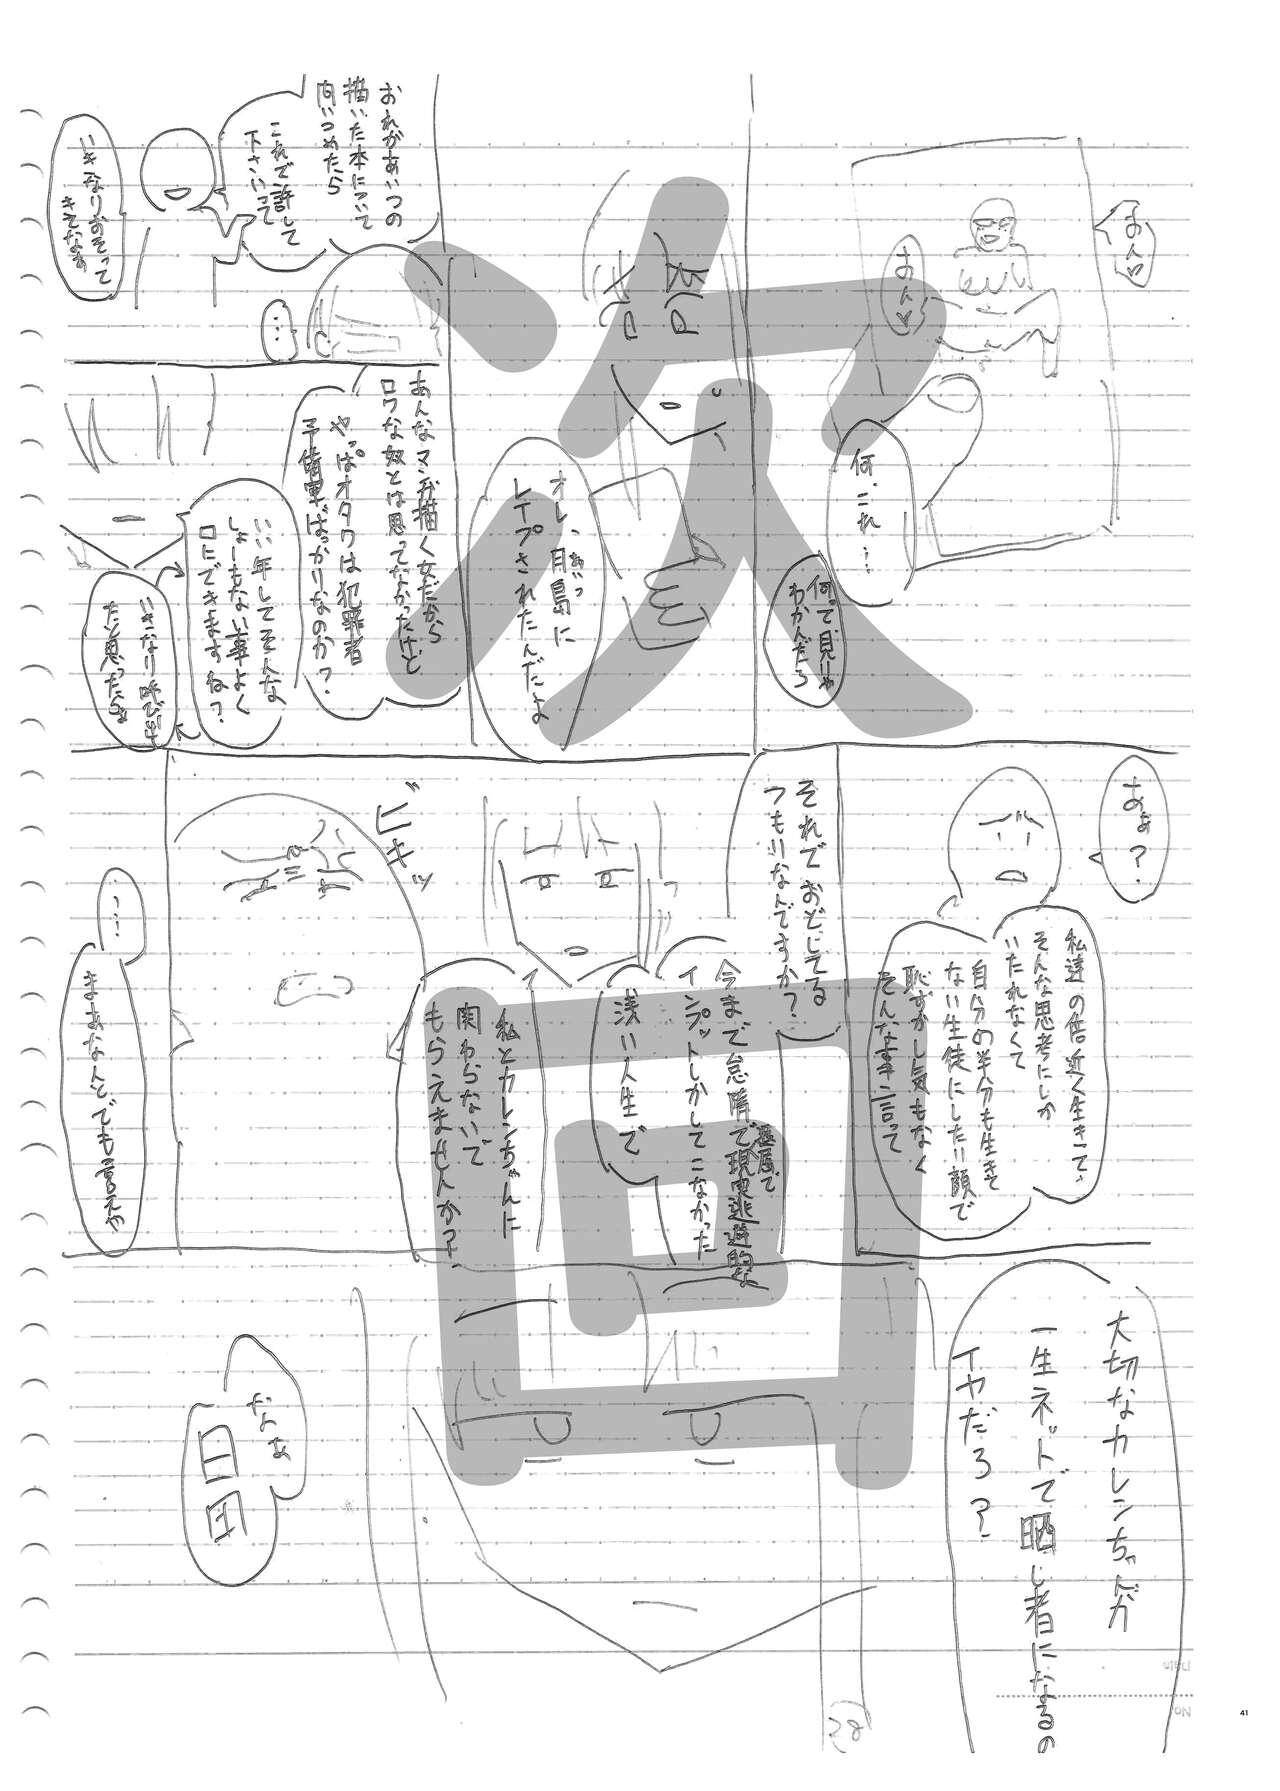 おん♡
おん♡
何、これ…
何って見りゃ
わかんだろ
オレ、月島に
レイプされたんだよ
おれがあいつの
描いた本について
問いつめたら
これで許して
下さいって
いきなりおそって
きてなぁ
…
あんなマンガ描く女だから
ロクな奴とは思ってなかったけど
やっぱオタクは犯罪者
予備軍ばっかりなのか?
いい年してそんな
しょーもない事よく
口にできますね?
いきなり呼び出し
たと思ったらぁ
あぁ?
私達の倍近く生きてて、
そんな思考にしか
いたれなくて
自分の半分も生きて
ない生徒にしたり顔で
恥ずかし気もなく
そんな事言って
それでおどしてる
つもりなんですか?
今まで怠惰で現実逃避的な
インプットしかしてこなかった
浅い人生で
私とカレンちゃんに
関わらないで
もらえませんか?
ビキッ
……
まあなんとでも言えや
大切なカレンちゃんが
一生ネットで晒し者になるの
イヤだろ?
なぁ
次回
No.
41